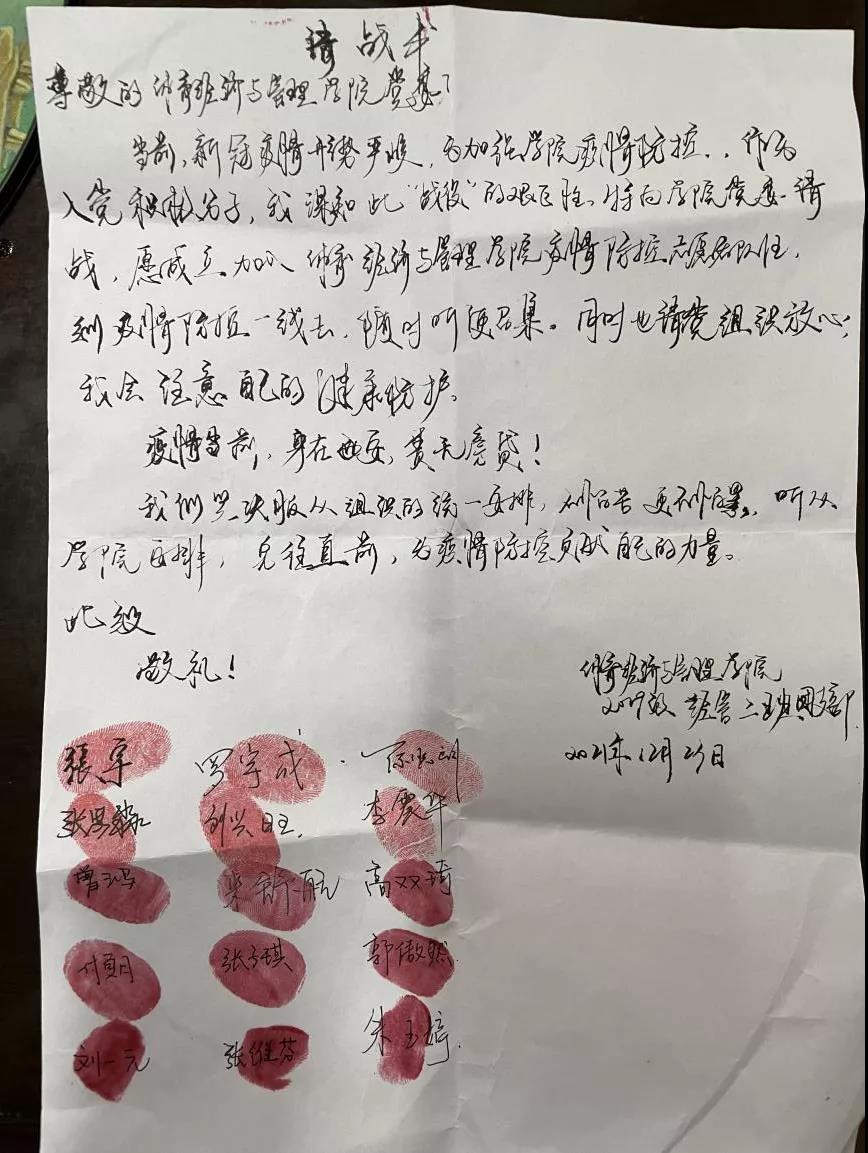 请战书
尊敬的体育经济与管理学院党委:
当前,新冠疫情形势严峻,为加强学院疫情防控,作为
入党积极分子,我深知此“战役”的艰巨性,特向学院党委请
战,愿成立加入体育经济与管理学院疫情防控志愿者队伍,
到疫情防控一线去,随时听便召集。同时也请党组织放心;
我会注意自己的健康防护。
疫情当前,身在西安,责无旁贷!
我们坚决服从组织的统一安排,不怕苦更不怕累,听从
学院安排,勇往直前,为疫情防控贡献自己的力量。
此致
敬礼!
体育经济与管理学院
2019级 经管二班团支部
2021年12月29日
張宇 罗宇成
刘兴旺 李震华
高双琦
付夏月 张子琪 郭傲然
刘一元 张维芬 朱玉婷